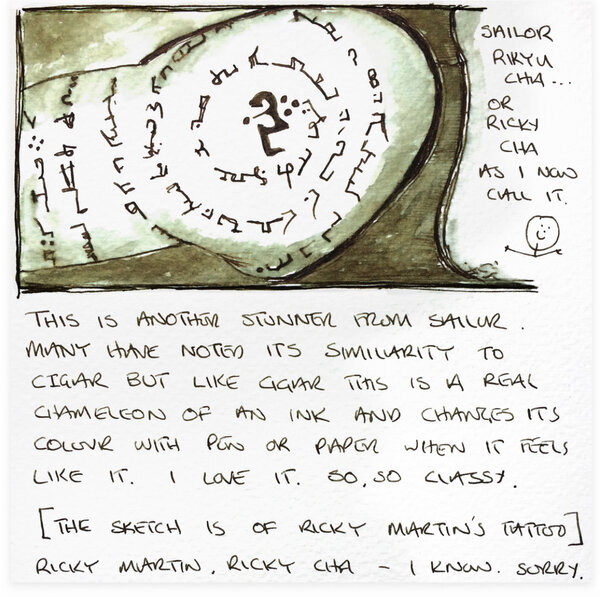 SAILOR
RIKYU
CHA...
OR
RICKY
CHA
AS I NOW
CALL IT.
THIS IS ANOTHER STUNNER FROM SAILOR.
MANY HAVE NOTED ITS SIMILARITY TO
CIGAR BUT LIKE CIGAR THIS IS A REAL
CHAMELEON OF AN INK AND CHANGES ITS
COLOUR WITH PEN OR PAPER WHEN IT FEELS
LIKE IT. I LOVE IT. SO, SO CLASSY.
[THE SKETCH IS OF RICKY MARTIN'S TATTOO]
RICKY MARTIN. RICKY CHA - I KNOW. SORRY.